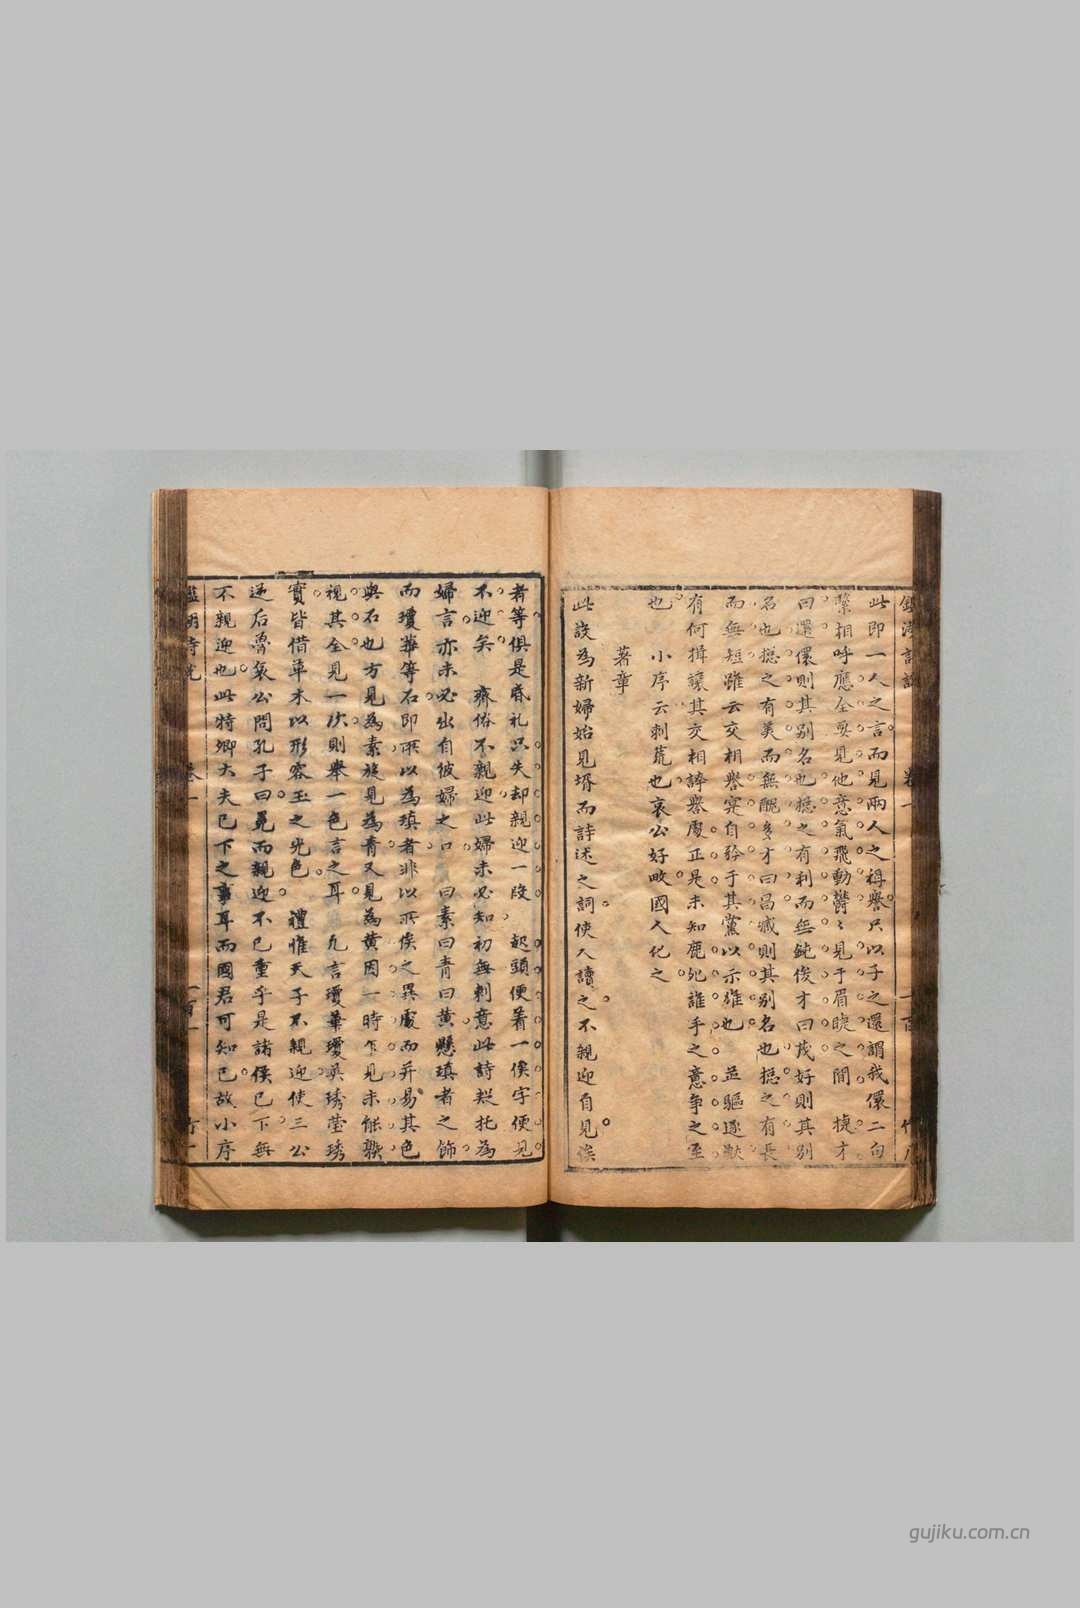 此即一人之言而見兩人之稱譽只以子之還謂我儇二句
緊相呼應全要見他意氣飛動鬱〻見于眉睫之間 捷才
曰還儇則其別名也揔之有利而無鈍俊才曰茂好則其別
名也揔之有美而無醜多才曰昌臧則其別名也揔之有長
而無短雖云交相譽寔自矜于其黨以示雄也 並驅逐獸
有何揖讓其交相譁譽處正是未知鹿死誰手之意爭之至
也 小序云刺荒也哀公好畋國人化之
著章
此設為新婦始見壻而詩述之詞使人讀之不親迎自見俟
者等俱是昏礼只失却親迎一段 起頭便著一俟字便見
不迎矣 齊俗不親迎此婦未必知初無刺意此詩想托為
婦言亦未必出自彼婦之口 曰素曰青曰黃懸瑱者之飾
而瓊華等石即所以為瑱者非以所俟之異處而并易其色
與石也方見為素旋見為青又見為黃因一時乍見未能諦
視其全見一次則舉一色言之耳 凡言瓊華瓊英琇瑩琇
實皆借草木以形容玉之光色 禮惟天子不親迎使三公
逆后魯哀公問孔子曰冕而親迎不已重乎是諸侯已下無
不親迎也此特卿大夫已下之事耳而國君可知已故小序
鑑湖詩說 卷一